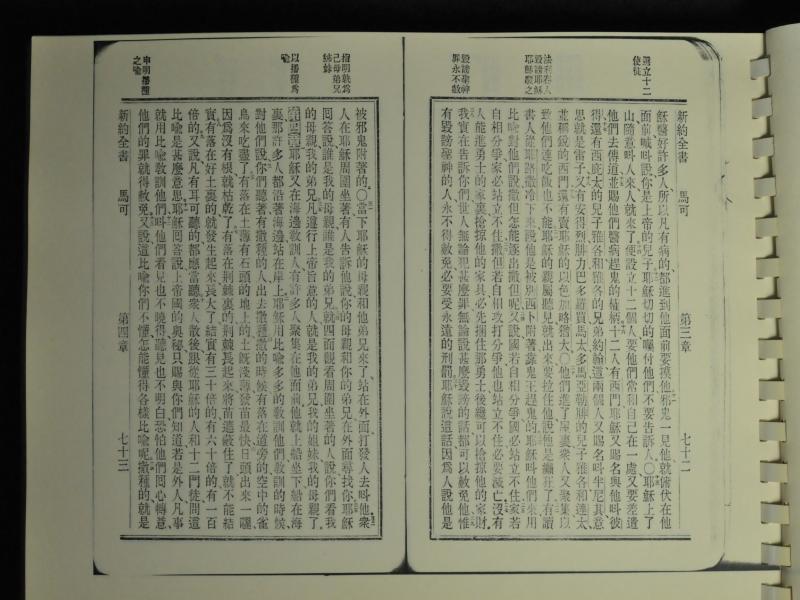 設立十二使徒
法利賽人毀謗耶穌耶穌責之
毀謗聖神罪永不赦
新約全書 馬可 第三章 七十二
穌醫好許多人所以凡有病的都進到他面前要摸他邪鬼一見他就俯伏在他
面前喊叫說你是上帝的兒子耶穌切切的囑付他們不要告訴人〇耶穌上了
山隨意叫人來人就來了便設立十二個人要他們常和自己在一處又要差遣
他們去傳道並賜他們醫病趕鬼的權柄十二人有西門耶穌又賜名與他叫彼
得還有西庇太的兒子雅各和雅各的兄弟約翰這兩個人又賜名叫半尼其意
思就是雷子又有安得烈腓力巴多羅買馬太多馬亞勒腓的兒子雅各和達太
並稱銳的西門還有賣耶穌的以色加畧猶大〇他們進了屋裏衆人又聚集以
致他們連吃飯也不能耶穌的親屬聽見就出來要拉住他說他是癲狂了有讀
書人從耶路撒冷下來說他是被別西卜附著靠鬼王趕鬼的耶穌叫他們來用
比喻對他們說撒但怎能逐出撒但呢又說國若自相分爭國必站立不住家若
自相分爭家必站立不住撒但若自相攻打分爭他也站立不住必要滅亡沒有
人能進勇士的家裏搶掠他的家具必先捆住那勇士後纔可以搶掠他的家財
我實在告訴你們世人無論犯甚麼罪無論說甚麼毀謗的話都可以赦免他惟
有毀謗聖神的人永不得赦免必要受永遠的刑罰耶穌說這話因為人說他是
指明孰為己母弟兄姊妹
以播種為喻
申明播種之喻
新約全書 馬可 第四章 七十三
被邪鬼附著的〇當下耶穌的母親和他弟兄來了站在外面打發人去叫他衆
人在耶穌周圍坐著有人告訴他說你的母親和你的弟兄在外面尋找你耶穌
回答說誰是我的母親誰是我的弟兄就四面觀看周圍坐著的人說你們看我
的母親我的弟兄凡遵行上帝旨意的人就是我的弟兄我的姐妹我的母親了
第四章耶穌又在海邊敎訓人有許多人聚集在他面前他就上船坐下船在海
裏那許多人都沿著海邊站在岸上耶穌用比喻多多的敎訓他們敎訓的時候
對他們說你們聽著有撒種的人出去撒種撒的時候有落在道旁的空中的雀
鳥來吃盡了有落在土薄有石頭的地上的土旣淺薄發苗最快日頭出來一曬
因為沒有根就枯乾了有落在荊棘裏的荊棘長起來將苗遮蔽住了就不能結
實有落在好土裏的就發生起來長大了結實有三十倍的有六十倍的有一百
倍的又說凡有耳可聽的都應當聽衆人散後跟從耶穌的人和十二門徒問這
比喻是甚麼意思耶穌回答說上帝國的奧秘只賜與你們知道若是外人凡事
就用比喻敎訓他們叫他們看見也不曉得聽見也不明白恐怕他們回心轉意
他們的罪就得赦免又說這比喻你們不懂怎能懂得各樣比喻呢撒種的就是